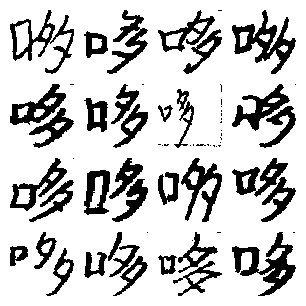 哆哆哆哆
哆哆哆哆
哆哆哆哆
哆哆哆哆